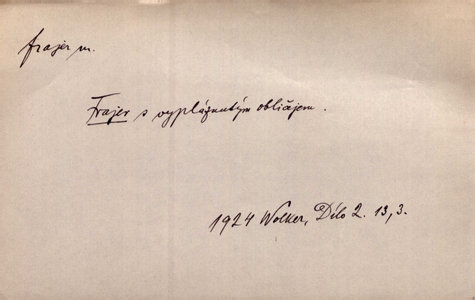 frajer m.
Frajer s vypláznutým obličejem.
1924 Wolker, Dílo 2. 13,3.